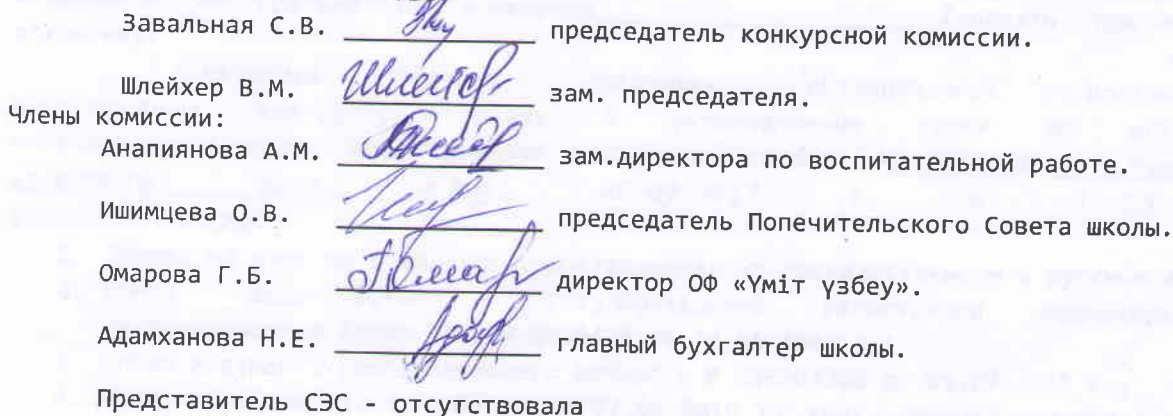 Завальная С.В. председатель конкурсной комиссии.
Шлейхер В.М. зам. председателя.
Члены комиссии:
Анапиянова А.М. зам.директора по воспитательной работе.
Ишимцева О.В. председатель Попечительского Совета школы.
Омарова Г.Б. директор ОФ «Үміт үзбеу».
Адамханова Н.Е. главный бухгалтер школы.
Представитель СЭС - отсутствовала